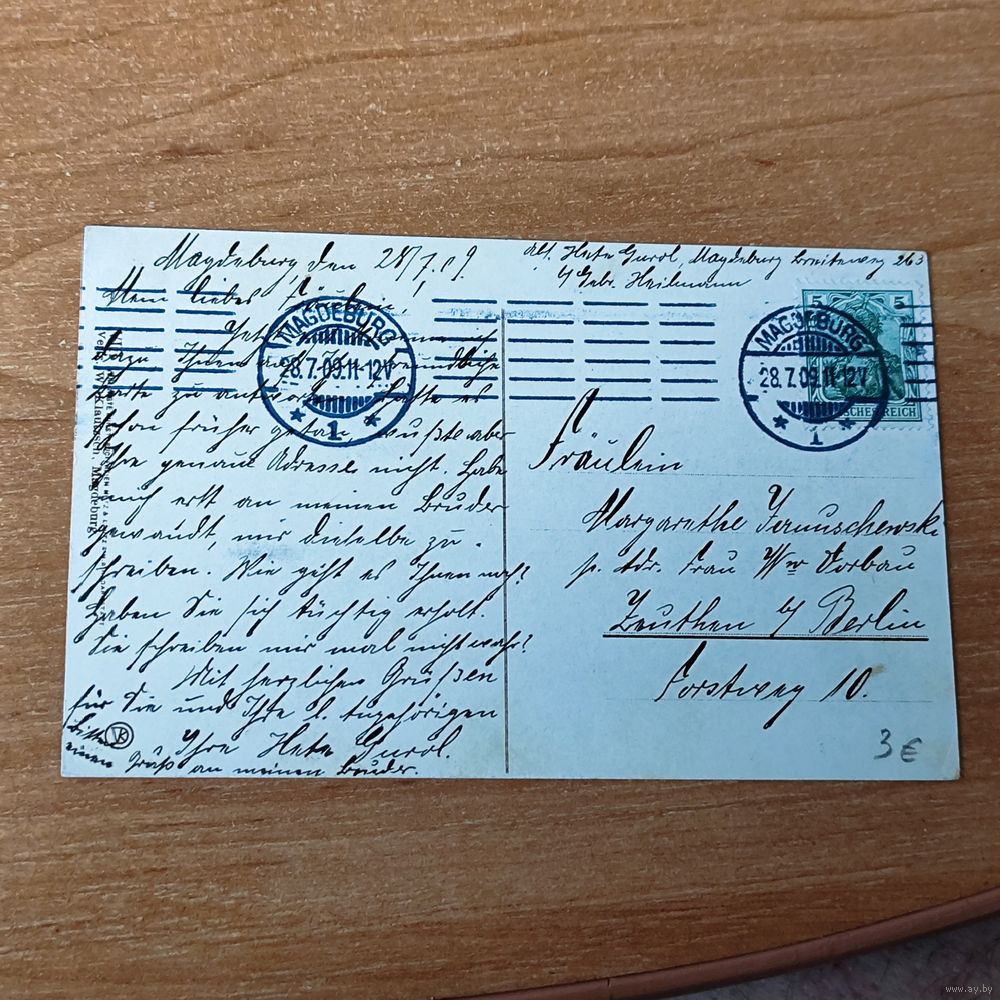 Magdeburg, den 28/7.09.
Abs. Hete Gurol, Magdeburg Breiteweg 263
b/ Gebr. Heilmann
Mein liebes Fräulein!
dazu Ihnen auf Ihre freundliche
Karte zu antworten. Hätte es
schon früher getan, wußte aber
Ihre genaue Adresse nicht. Habe
mich erst an meinen Bruder
gewandt, mir dieselbe zu
schreiben. Wie geht es Ihnen noch?
Haben Sie sich tüchtig erholt.
Sie schreiben mir mal nicht wahr?
Mit herzlichen Grüßen
für Sie und Ihre l. Angehörigen
Ihre Hete Gurol.
Bitte
einen Gruß an meinen Bruder.
MAGDEBURG
28.7.09.11-12V
* 1 *
MAGDEBURG
28.7.09.11-12V
* 1 *
5 5
REICH
Fräulein
Margarethe
p. Adr. Frau Wwe Vorbau
Zeuthen b/ Berlin
Forstweg 10.
Magdeburg.
VK
3 €
www.ay.by